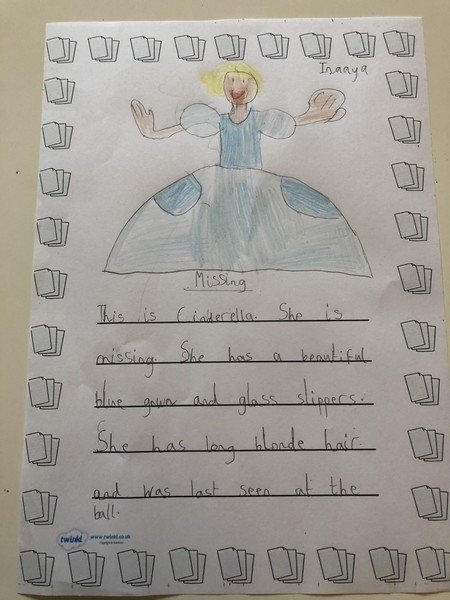 Inaaya
Missing
This is Cinderella. She is
missing. She has a beautiful
blue gown and glass slippers.
She has long blonde hair
and was last seen at the
ball.
twinkl www.twinkl.co.uk